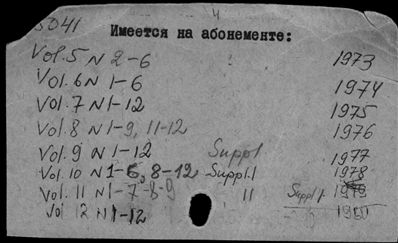 5041
Имеется на абонементе:
Vol. 5 N 2-6 1973
Vol. 6 N 1-6 1974
Vol. 7 N 1-12 1975
Vol. 8 N 1-9, 11-12 1976
Vol. 9 N 1-12 Suppl 1977
Vol. 10 N 1-6, 8-12 Suppl.1 1978
Vol. 11 N 1-7-8-9 11 Suppl 1 1979
Vol 12 N 1-12 1980